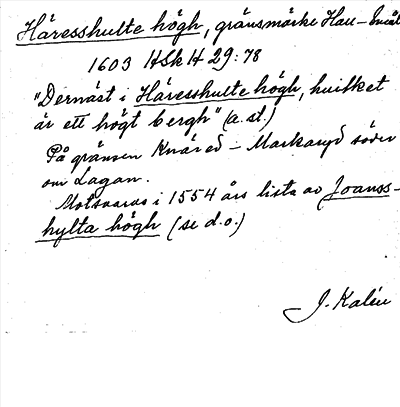 Häresshulte högh, gränsmärke Hall-Smål
1603 HSk H 29:78
"Dernäst i Häresshulte högh, huilket
är ett högt bergh" (a.st.)
På gränsen Knäred - Markaryd söder
om Lagan.
Motsvaras i 1554 års lista av Joanss-
hylta högh (se d.o.)
J. Kalén